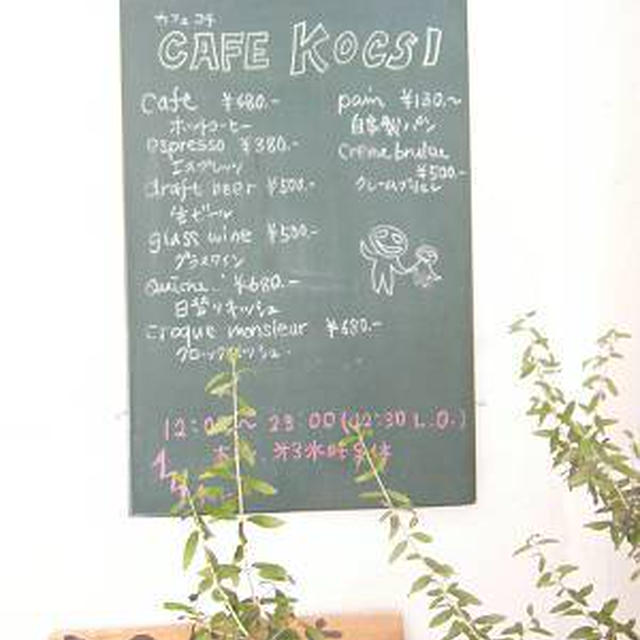 カフェ コチ
CAFE KOCSI
Cafe ¥480.-
ホットコーヒー
espresso ¥380.-
エスプレッソ
draft beer ¥500.-
生ビール
glass wine ¥500-
グラスワイン
Quiche ¥680.-
日替りキッシュ
croque monsieur ¥480.-
クロックムッシュ
pain ¥130.~
自家製パン
Crème brulee
¥500-
クレームブリュレ
12:00~23:00 (22:30 L.O.)
第3水曜